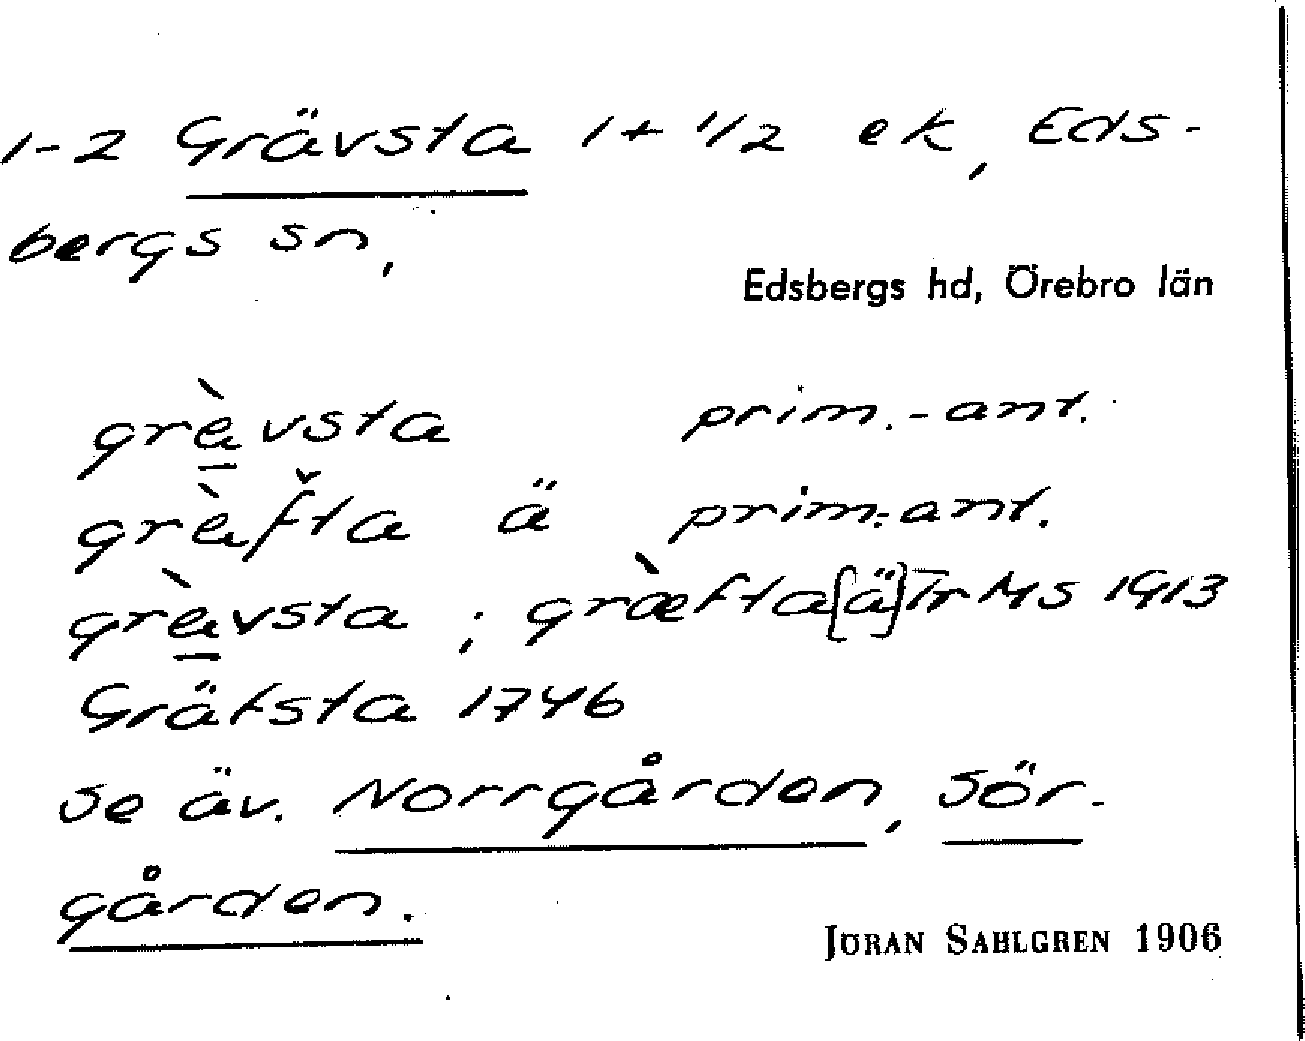 1-2 Grävsta 1 + 1/2 ek, Eds-
bergs sn,
Edsbergs hd, Örebro län
grèvsta prim.-ant.
grèfta ä prim.-ant.
grèvsta ; græ̀fta [ä] Tr MS 1913
Gräfsta 1746
se äv. Norrgården, Sör-
gården.
JÖRAN SAHLGREN 1906